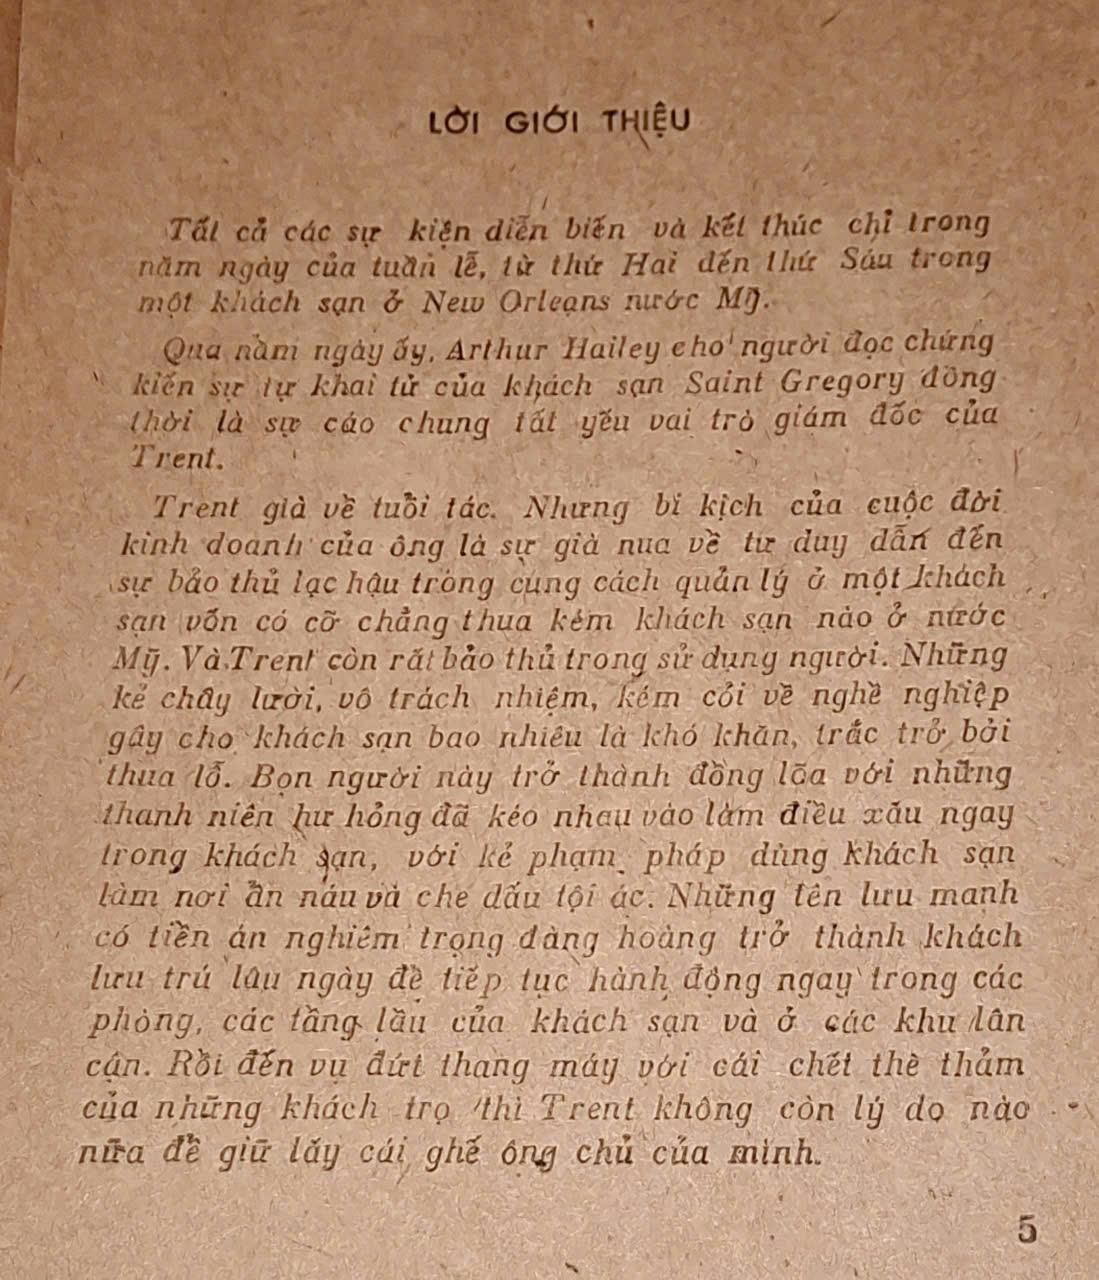 LỜI GIỚI THIỆU
Tất cả các sự kiện diễn biến và kết thúc chỉ trong
năm ngày của tuần lễ, từ thứ Hai đến thứ Sáu trong
một khách sạn ở New Orleans nước Mỹ.
Qua năm ngày ấy, Arthur Hailey cho người đọc chứng
kiến sự tự khai tử của khách sạn Saint Gregory đồng
thời là sự cáo chung tất yếu vai trò giám đốc của
Trent.
Trent già về tuổi tác. Nhưng bi kịch của cuộc đời
kinh doanh của ông là sự già nua về tư duy dẫn đến
sự bảo thủ lạc hậu trong cung cách quản lý ở một khách
sạn vốn có cỡ chẳng thua kém khách sạn nào ở nước
Mỹ. Và Trent còn rất bảo thủ trong sử dụng người. Những
kẻ chây lười, vô trách nhiệm, kém cỏi về nghề nghiệp
gây cho khách sạn bao nhiêu là khó khăn, trắc trở bởi
thua lỗ. Bọn người này trở thành đồng lõa với những
thanh niên hư hỏng đã kéo nhau vào làm điều xấu ngay
trong khách sạn, với kẻ phạm pháp dùng khách sạn
làm nơi ẩn náu và che dấu tội ác. Những tên lưu manh
có tiền án nghiêm trọng đàng hoàng trở thành khách
lưu trú lâu ngày để tiếp tục hành động ngay trong các
phòng, các tầng lầu của khách sạn và ở các khu lân
cận. Rồi đến vụ đứt thang máy với cái chết thê thảm
của những khách trọ thì Trent không còn lý do nào
nữa để giữ lấy cái ghế ông chủ của mình.
5